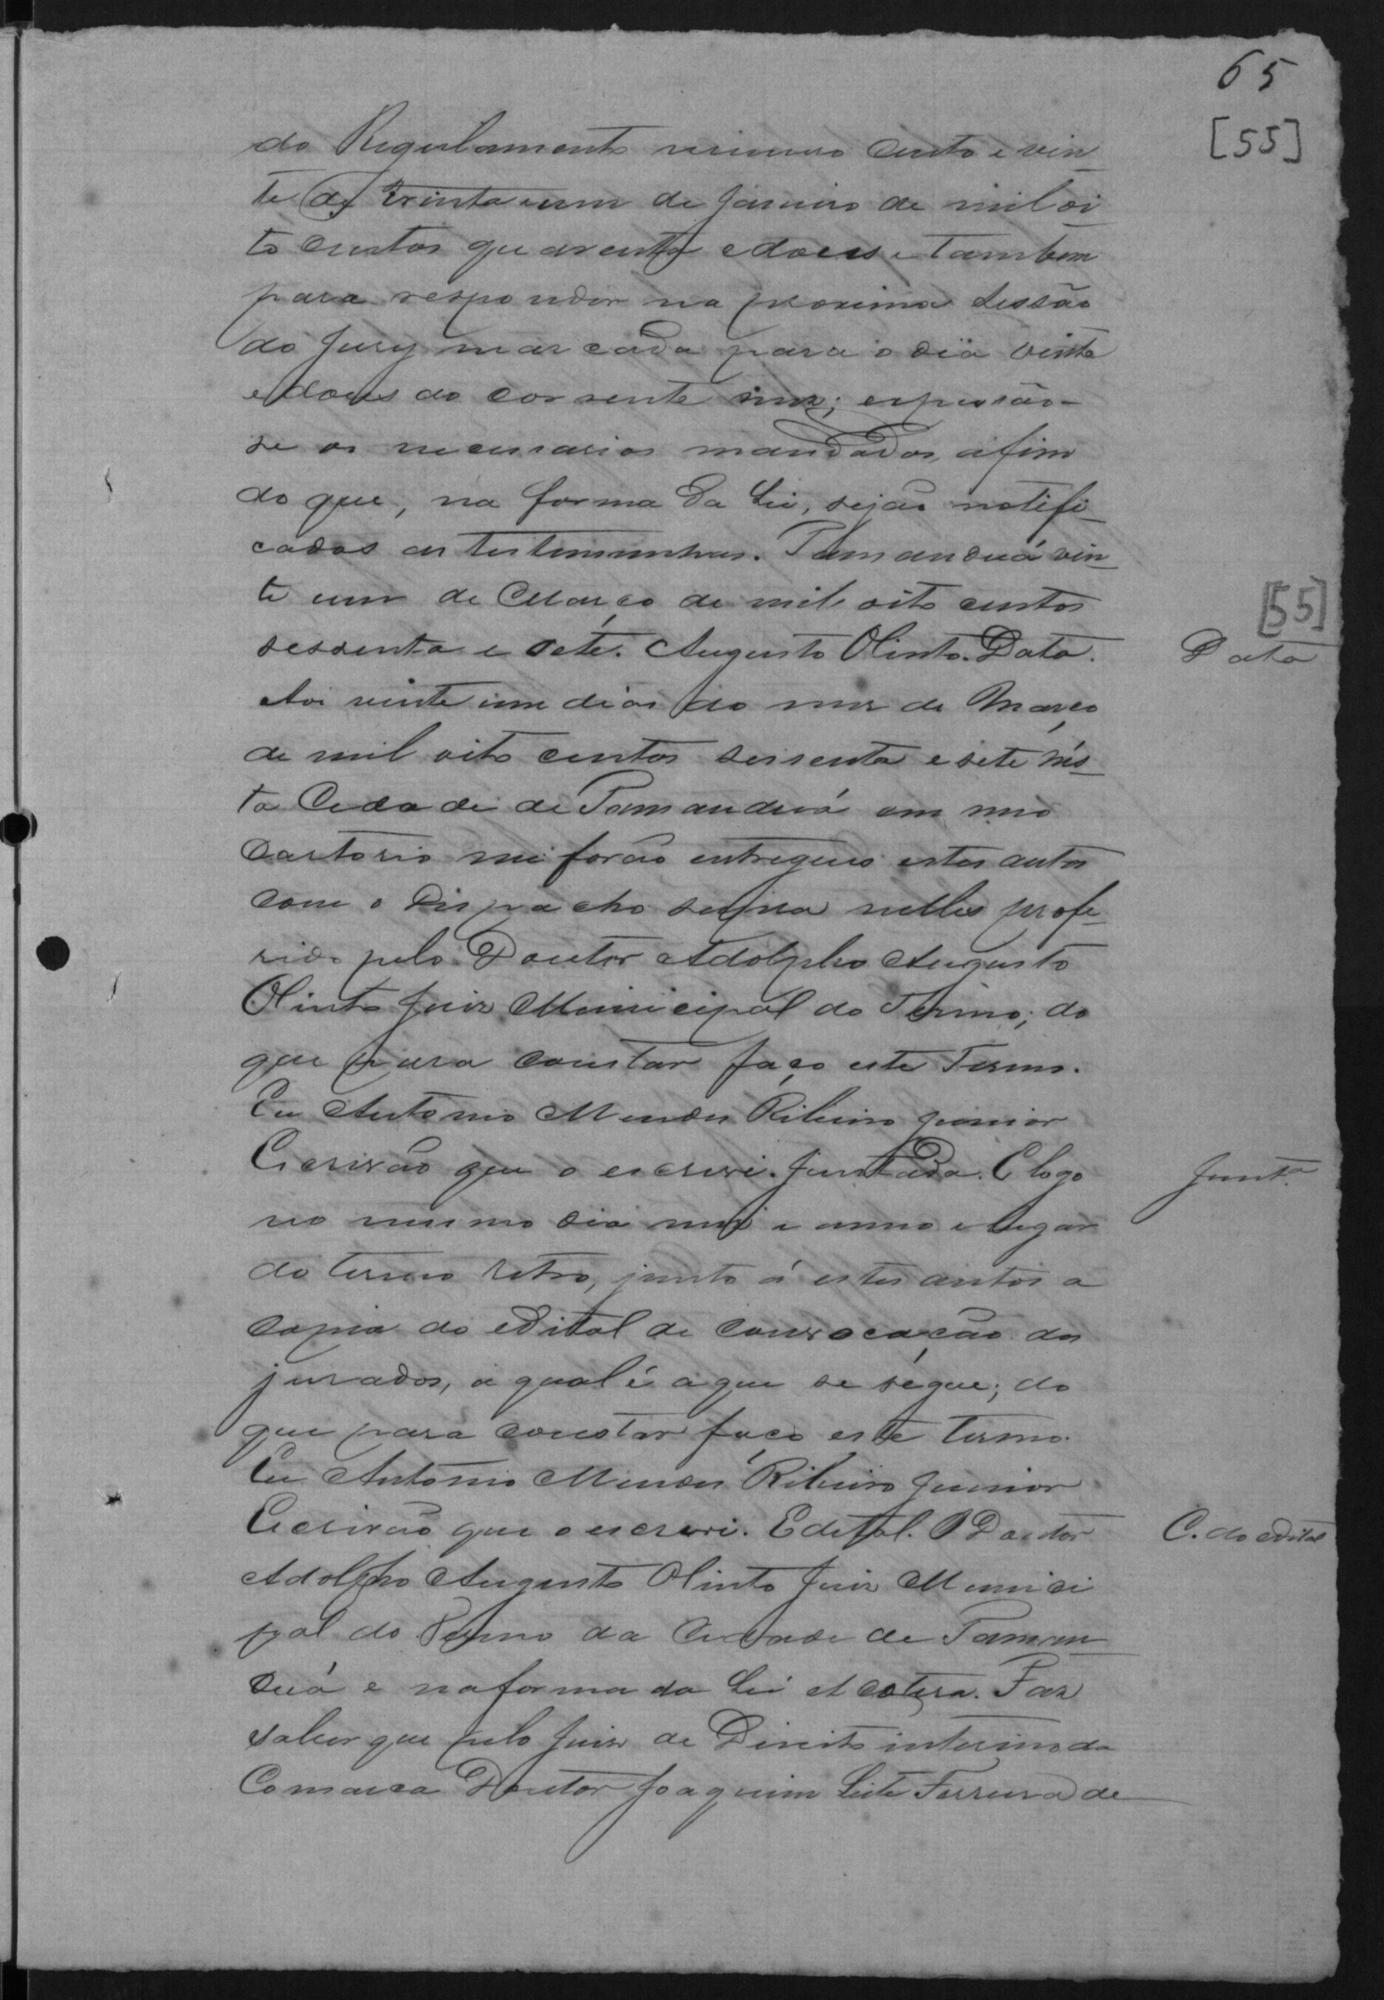 65
[55]
do Regulamento numero cento e vin
te de trinta e um de Janeiro de mil oi
to centos quarenta e dous e tambem
para responder na proxima Sessão
do Jury marcada para o dia vinte
e dous do corrente mez; expessão-
se os necessarios mandados, afim
do que, na forma da Lei, sejão notifi-
cadas as testemunhas. Tamanduá vin-
te um de Março de mil oito centos
sessenta e sete. Augusto Olinto. Data.
[55]
Data
Aos vinte um dias do mez de Março
de mil oito centos sessenta e sete nés-
ta Cidade de Tamanduá em meo
Cartorio me forão entregues estes autos
com o Dispacho supra nelles profe-
rido pelo Doutor Adolpho Augusto
Olinto Juiz Municipal do Termo; do
que para constar faço este Termo.
Eu Antonio Mendes Ribeiro Junior
Escrivão que o escrevi. Juntada. E logo
Junt.ª
no mesmo dia mez e anno e lugar
do termo retro, junto á estes autos a
copia do edital de convocação dos
jurados, a qual é a que se ségue; do
que para constar faço este termo.
Eu Antonio Mendes Ribeiro Junior
Escrivão que o escrevi. Edital. O Doutor
C. do edital
Adolpho Augusto Olinto Juiz Munici
pal do Termo da Cidade de Taman
duá e na forma da Lei et cetera. Faz
saber que pelo Juiz de Direito interino da
Comarca Doutor Joaquim Leite Ferreira de